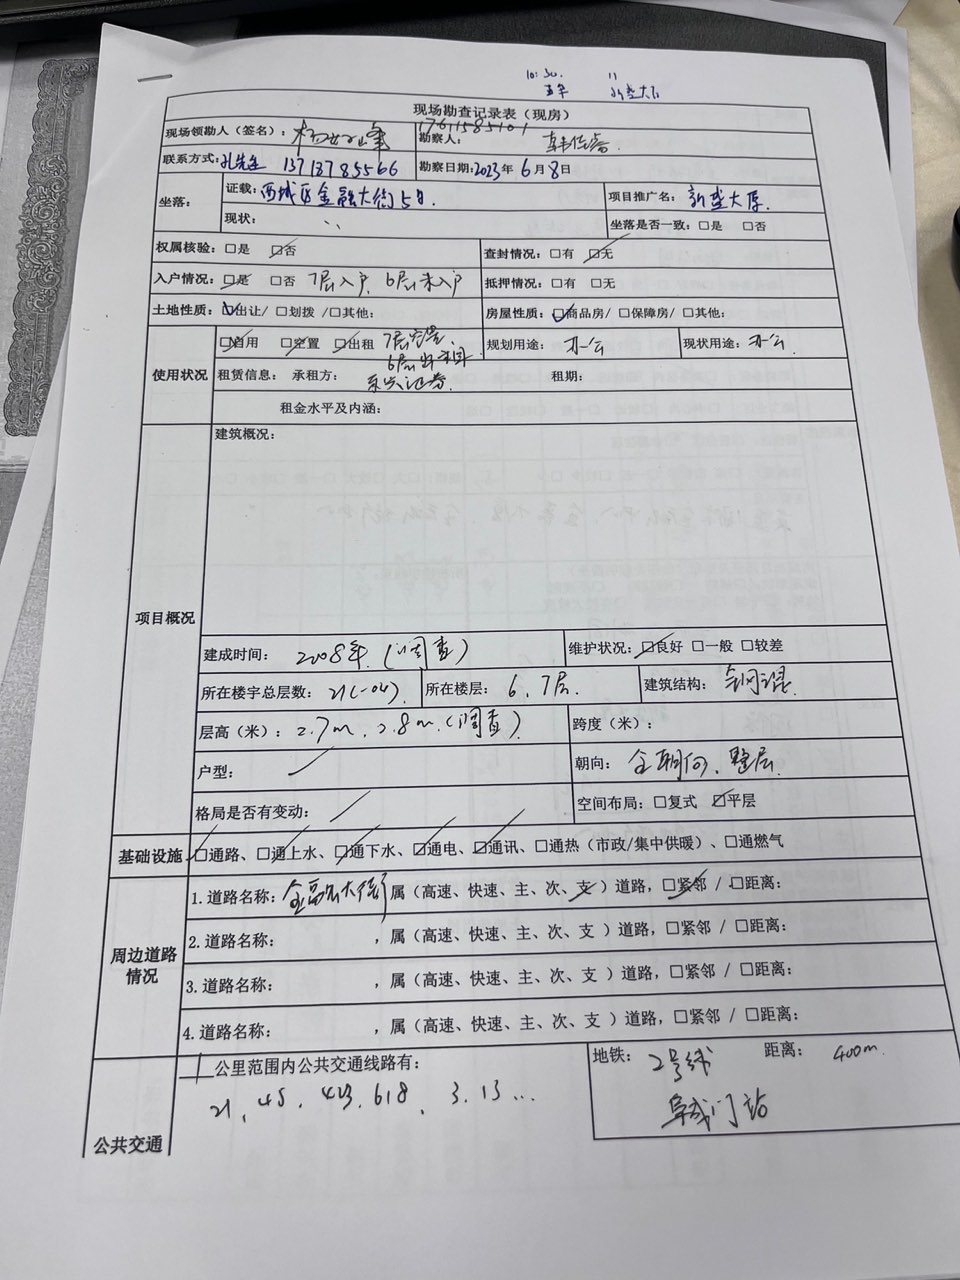 10:30. 11
新盛大厦
现场勘查记录表（现房）
现场领勘人（签名）： 17611585101
勘察人：
联系方式：孔先生 13718785566 勘察日期：2023年6月8日
坐落： 证载：西城区金融大街5号 项目推广名：新盛大厦.
现状： 坐落是否一致：□是 □否
权属核验：□是 ☑否 查封情况：□有 ☑无
入户情况：☑是 □否 7层入户、6层未入户 抵押情况：□有 □无
土地性质：☑出让/ □划拨 /□其他： 房屋性质：☑商品房/ □保障房/ □其他：
使用状况 ☑自用 ☑空置 ☑出租 7层空置、 规划用途：办公 现状用途：办公.
6层出租
租赁信息： 承租方： 东兴证券 租期：
租金水平及内涵：
项目概况 建筑概况：
建成时间： 2008年.（调查） 维护状况：☑良好 □一般 □较差
所在楼宇总层数：21(-04) 所在楼层：6、7层. 建筑结构：钢混
层高（米）：2.7m、2.8m.（调查） 跨度（米）：
户型： 朝向：全朝向、整层
格局是否有变动： 空间布局：□复式 ☑平层
基础设施 ☑通路、☑通上水、☑通下水、☑通电、☑通讯、□通热（市政/集中供暖）、□通燃气
周边道路情况 1.道路名称：金融大街 属（高速、快速、主、次、支✓）道路，☑紧邻 / □距离：
2.道路名称： ，属（高速、快速、主、次、支 ）道路，□紧邻 / □距离：
3.道路名称： ，属（高速、快速、主、次、支 ）道路，□紧邻 / □距离：
4.道路名称： ，属（高速、快速、主、次、支 ）道路，□紧邻 / □距离：
公共交通 1 公里范围内公共交通线路有： 地铁：2号线 距离：400m.
21、45、423、618、3.13... 阜成门站